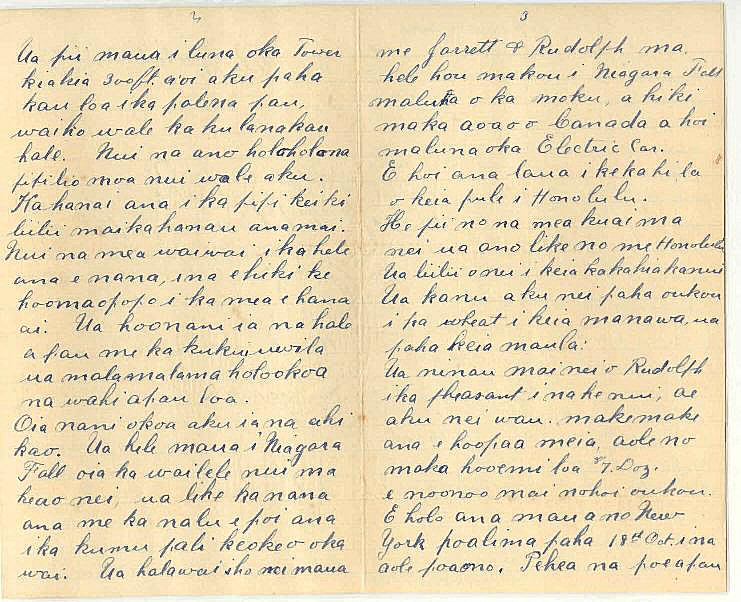 2
Ua pii maua i luna oka Tower
kiakia 300 ft. a oi aku paha
kau loa i ka palena pau,
waiho wale ka hulanakau
hale. Nui na ano holoholona
pipi ho moa nui wale aku.
Ka hanai ana i ka pipi keiki
liilii mai ka hanau ana mai.
Nui na mea waiwai i ka hele
ana e nana, ina e hiki ke
hoomaopopo i ka mea e hana
ai. Ua hoonani ia na hale
apau me ka kukui uwila
ua malamalama holookoa
na wahi apau loa.
Oia nani okoa aku ia na ahi
kao. Ua hele maua i Niagara
Fall oia ka wailele nui ma
keao nei, ua like ka nana
ana me ka nalu e poi ana
i ka kumu pali keokeo oka
wai. Ua halawai iho nei maua
3
me Jarrett & Rudolph ma.
hele hou makou i Niagara Fall
maluna o ka moku, a hiki
ma ka aoao o Canada a hoi
maluna oka Electric Car.
E hoi ana laua i kekahi la
o keia pule i Honolulu.
He pii no na mea kuai ma
nei ua ano like no me Honolulu
Ua liilii o nei i keia kakahiaka nui
Ua kanu aku nei paha oukou
i pa wheat i keia manawa, ua
paha keia maula:
Ua ninau mai nei o Rudolph
i ka pheasant i na he nui, ae
aku nei wau. makemake
ana e hoopaa meia, aole no
maka hooemi loa $7. Doz.
e noonoo mai nohoi oukou.
E holo ana maua no New
York poalima paha 18th Oct. i na
aole poaono. Pehea na poe apau